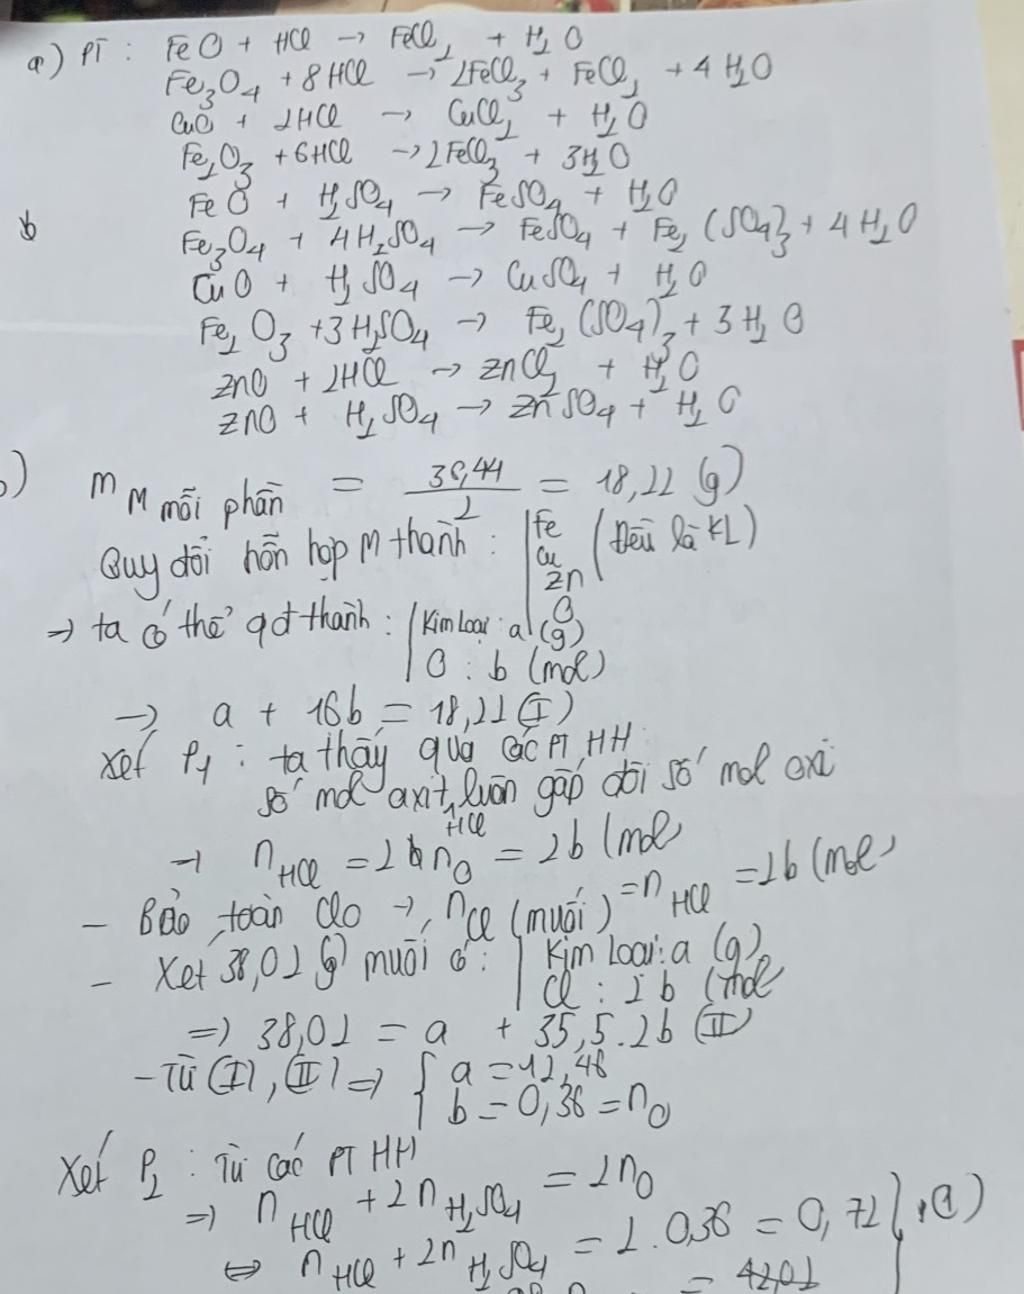 a) PT : FeO + HCl → FeCl2 + H2O
Fe3O4 + 8HCl → 2FeCl3 + FeCl2 + 4H2O
CuO + 2HCl → CuCl2 + H2O
Fe2O3 + 6HCl → 2FeCl3 + 3H2O
FeO + H2SO4 → FeSO4 + H2O
Fe3O4 + 4H2SO4 → FeSO4 + Fe2(SO4)3 + 4H2O
CuO + H2SO4 → CuSO4 + H2O
Fe2O3 + 3H2SO4 → Fe2(SO4)3 + 3H2O
ZnO + 2HCl → ZnCl2 + H2O
ZnO + H2SO4 → ZnSO4 + H2O
b) mM mỗi phần = 36,44/2 = 18,22 (g)
Quy đổi hỗn hợp M thành : | Fe Cu Zn (Đều là KL)
O
→ ta có thể qđ thành : | Kim loại : a (g)
O : b (mol)
→ a + 16b = 18,22 (I)
Xét P1 : ta thấy qua các PT HH
số mol axit HCl luôn gấp đôi số mol oxi
→ nHCl = 2nO = 2b (mol
- Bảo toàn Clo → nCl (muối) = nHCl = 2b (mol
- Xét 38,02 (g) muối có : | Kim loại : a (g)
Cl : 2b (mol
=> 38,02 = a + 35,5.2b (II)
- Từ (I), (II) => { a = 12,46
b = 0,36 = nO
Xét P2 : Từ các PT HH
=> nHCl + 2nH2SO4 = 2nO
<=> nHCl + 2nH2SO4 = 2.0,36 = 0,72 } (1)
= 42,02